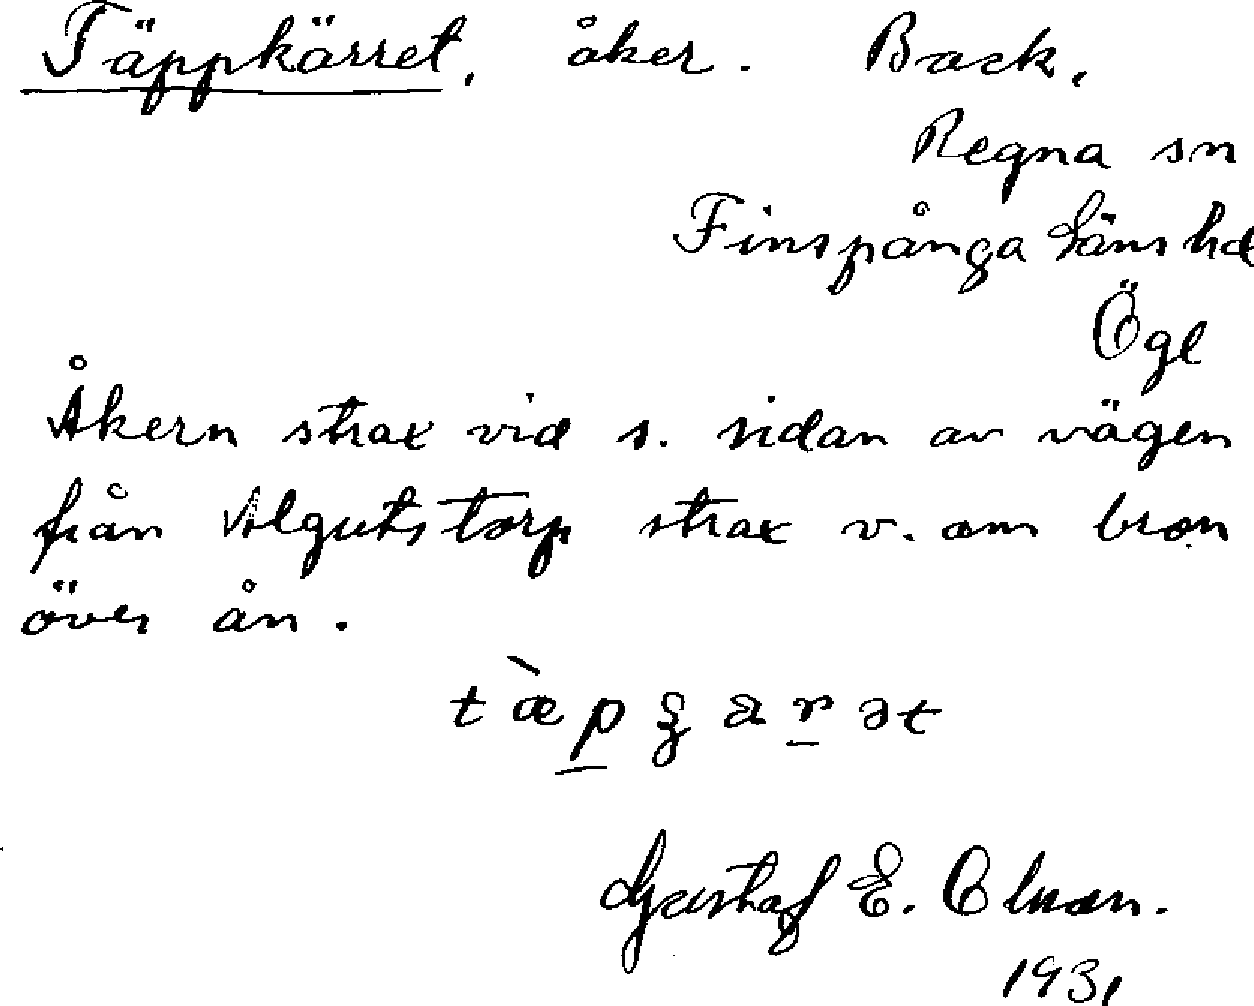 Täppkärret, åker. Back,
Regna sn
Finspånga läns hd
Ögl
Åkern strax vid s. sidan av vägen
från Algutstorp strax v. om bron
över ån.
Gustaf E. Olsson.
1931